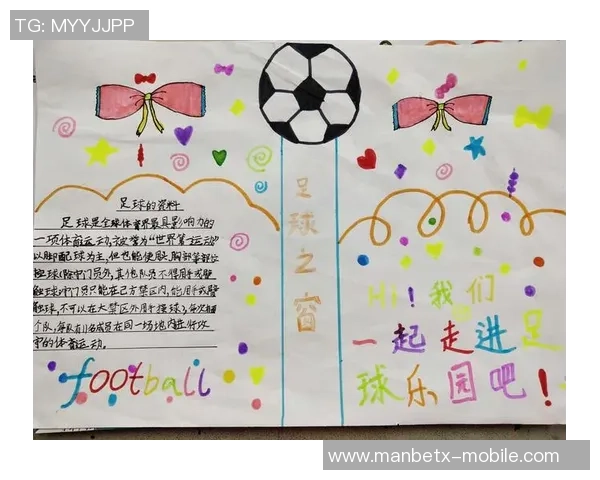 TG: MYYJJPP
足球的资料
足球是全球体育界最具影响力的
一项体育运动，被誉为“世界第一运动”
以脚配球为主，但也能使用头、胸部等部位
触球(除守门员外，其他队员不得用手或臂
触球)守门员只能在己方禁区内，能用手或臂
触球，不可以在大禁区外用手接球，每次
个队，每队有11名成员在同一场地内进行攻
守的体育运动。
football
足球之窗
Hi！我们
一起走进足
球乐园吧！
www.manbetx-mobile.com